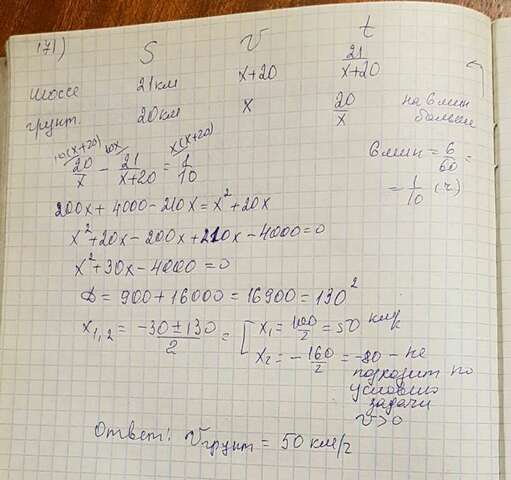 171)
S V t
шоссе 21км x+20 21/x+20
грунт. 20км x 20/x на 6 мин больше
10(x+20) 10x x(x+20)
20/x - 21/x+20 = 1/10
6 мин = 6/60 =
= 1/10 (ч)
200x + 4000 - 210x = x² + 20x
x² + 20x - 200x + 210x - 4000 = 0
x² + 30x - 4000 = 0
D = 900 + 16000 = 16900 = 130²
x1,2 = -30 ± 130/2 = [ x1 = 100/2 = 50 км/ч
x2 = - 160/2 = -80 - не
подходит по
условию
задачи
V>0
Ответ: Vгрунт = 50 км/ч